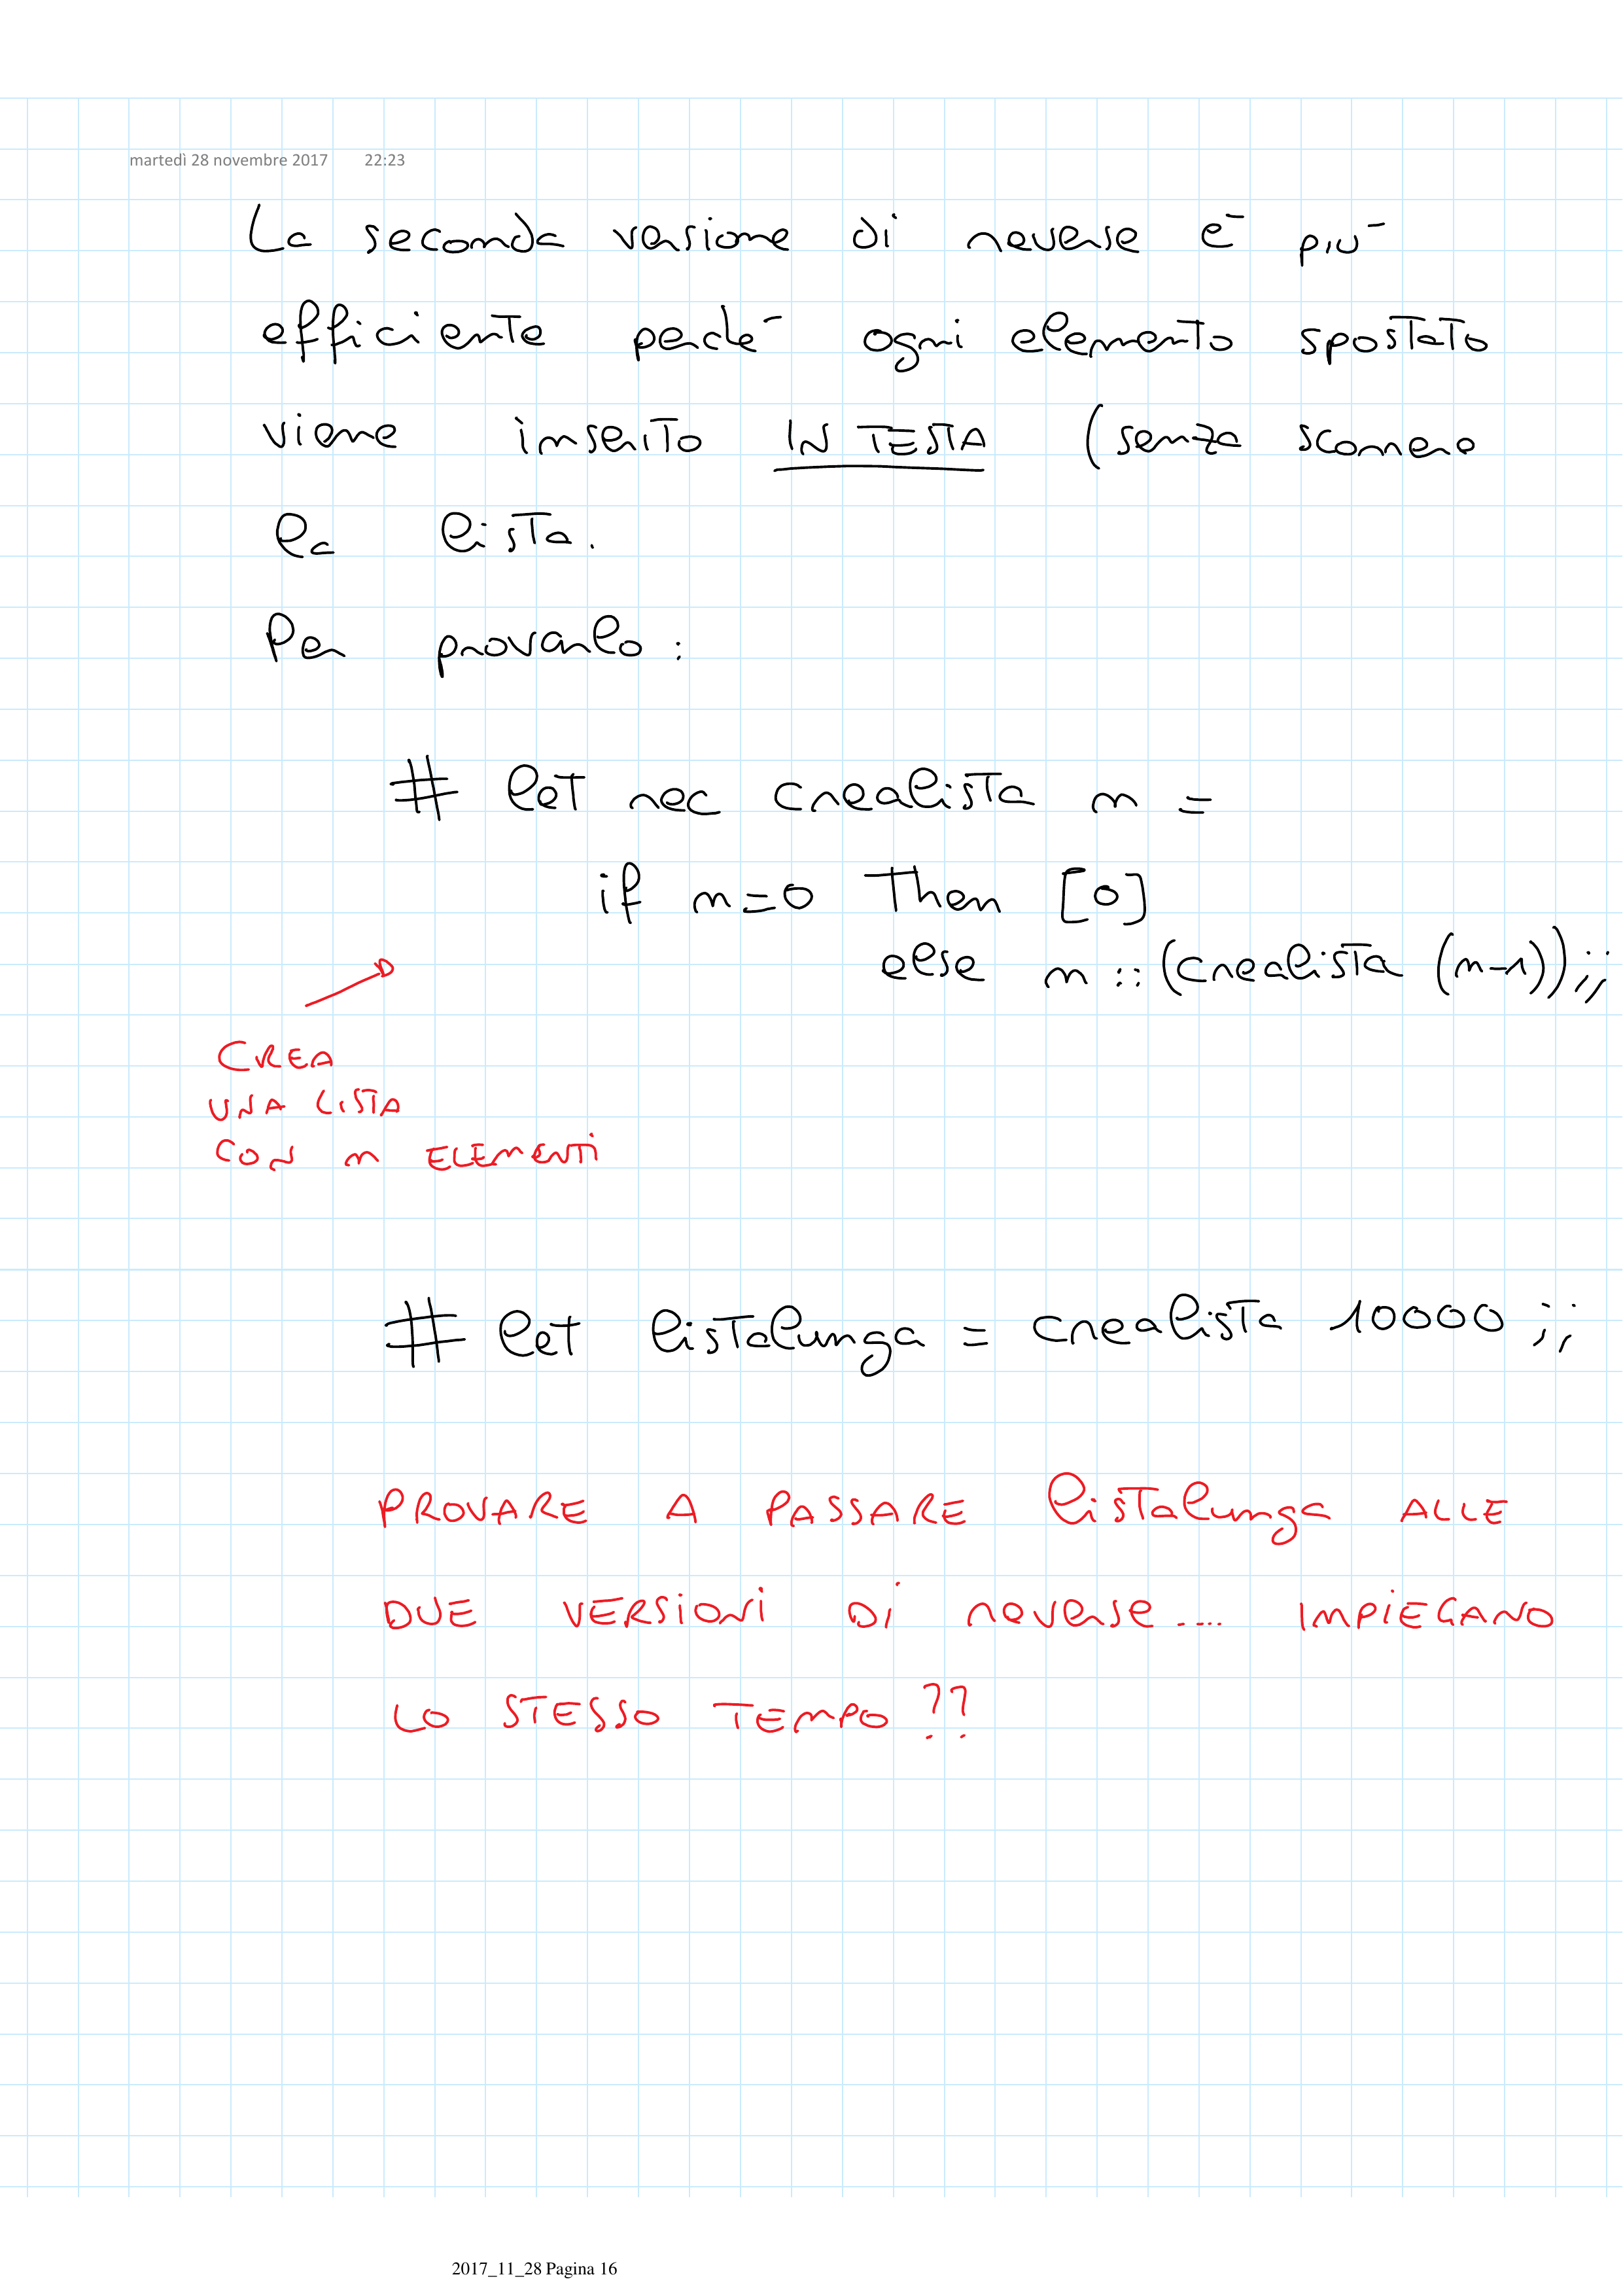 martedì 28 novembre 2017 22:23
La seconda versione di reverse è più
efficiente perché ogni elemento spostato
viene inserito IN TESTA (senza scorrere
la lista.
Per provarlo:
# let rec crealista n =
if n=0 then [0]
else n::(crealista (n-1));;
CREA
UNA LISTA
CON n ELEMENTI
# let listalunga = crealista 10000;;
PROVARE A PASSARE listalunga ALLE
DUE VERSIONI DI reverse.... IMPIEGANO
LO STESSO TEMPO??
2017_11_28 Pagina 16